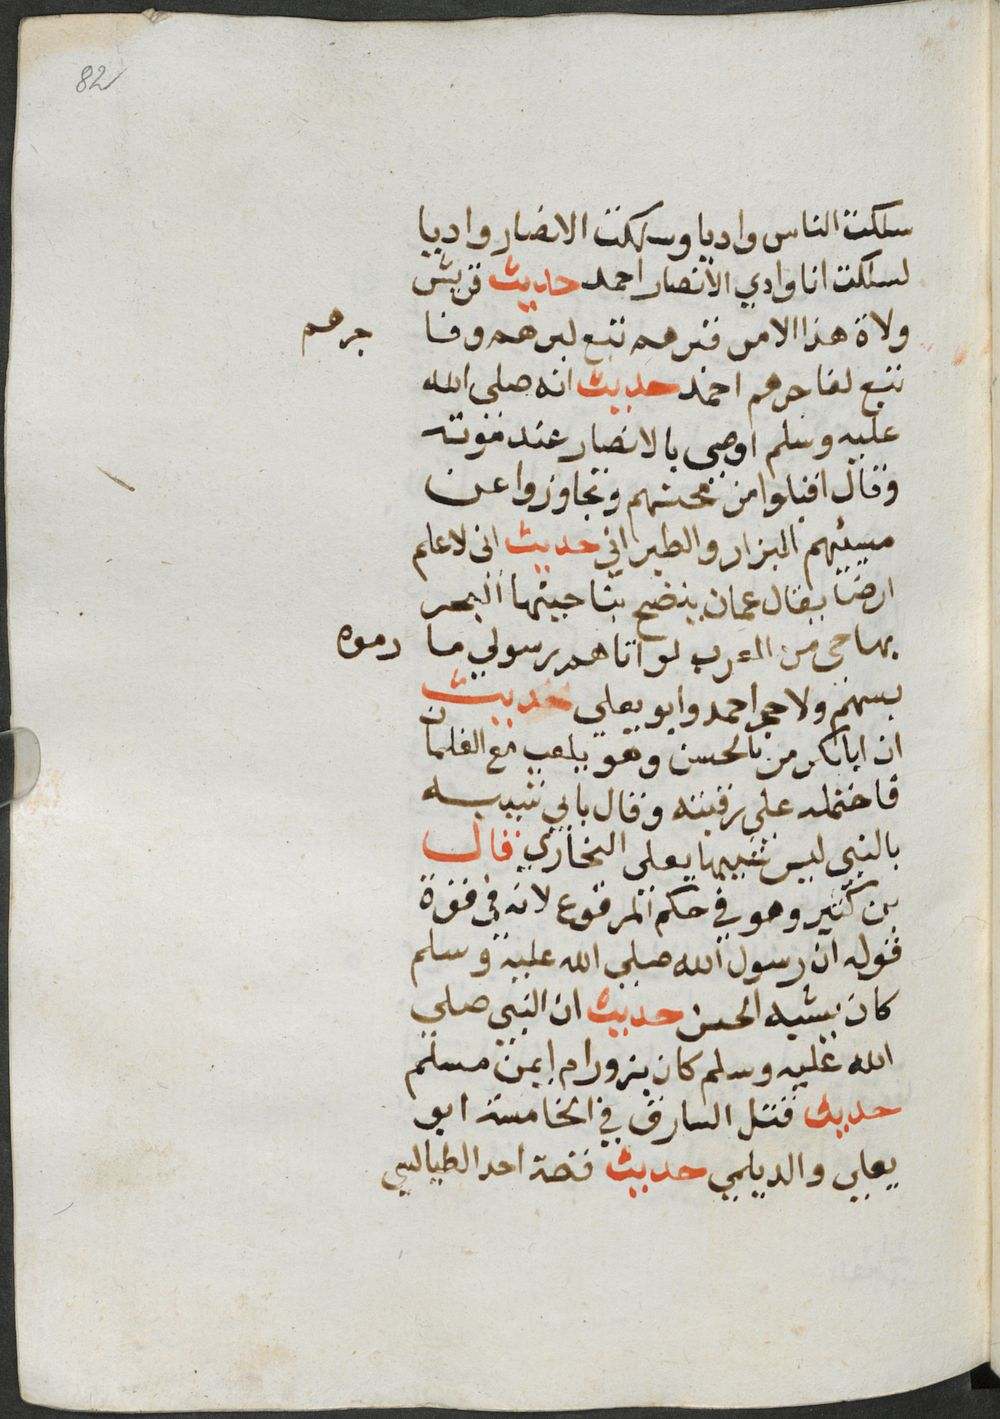 82
سلكت الناس واديا وسلكت الانصار واديا
لسلكت انا وادي الانصار احمد حديث قريش
ولاة هذا الامر فبرهم تبع لبرهم وفا
جرهم
تبع لفاجرهم احمد حديث انه صلى الله
عليه وسلم اوصى بالانصار عند موته
وقال اقبلوا من محسنهم وتجاوزوا عن
مسيئهم البزار والطبراني حديث انى لاعلم
ارضا يقال عمان ينضح بناحيتها البحر
بها حى من العرب لو اتاهم رسولي ما
رموه
بسهم ولا حجر احمد وابو يعلى حديث
ان ابا بكر مر بالحسن وهو يلعب مع الغلمان
فاحتمله على رقبته وقال بابي شبيه
بالنبى ليس شبيها بعلى البخاري قال
بن كثير وهو في حكم المرفوع لانه في قوة
قوله ان رسول الله صلى الله عليه وسلم
كان يشبه الحسن حديث ان النبى صلي
الله عليه وسلم كان يزور ام ايمن مسلم
حديث قتل السارق في الخامسة ابو
يعلى والديلمي حديث قصة احد الطيالسي